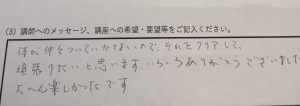 (3) 講師へのメッセージ、講座への希望・要望等をご記入ください。
体が仲々ついていかないので、それをクリアして、
頑張りたいと思います。いろいろありがとうございました
大へん楽しかったです